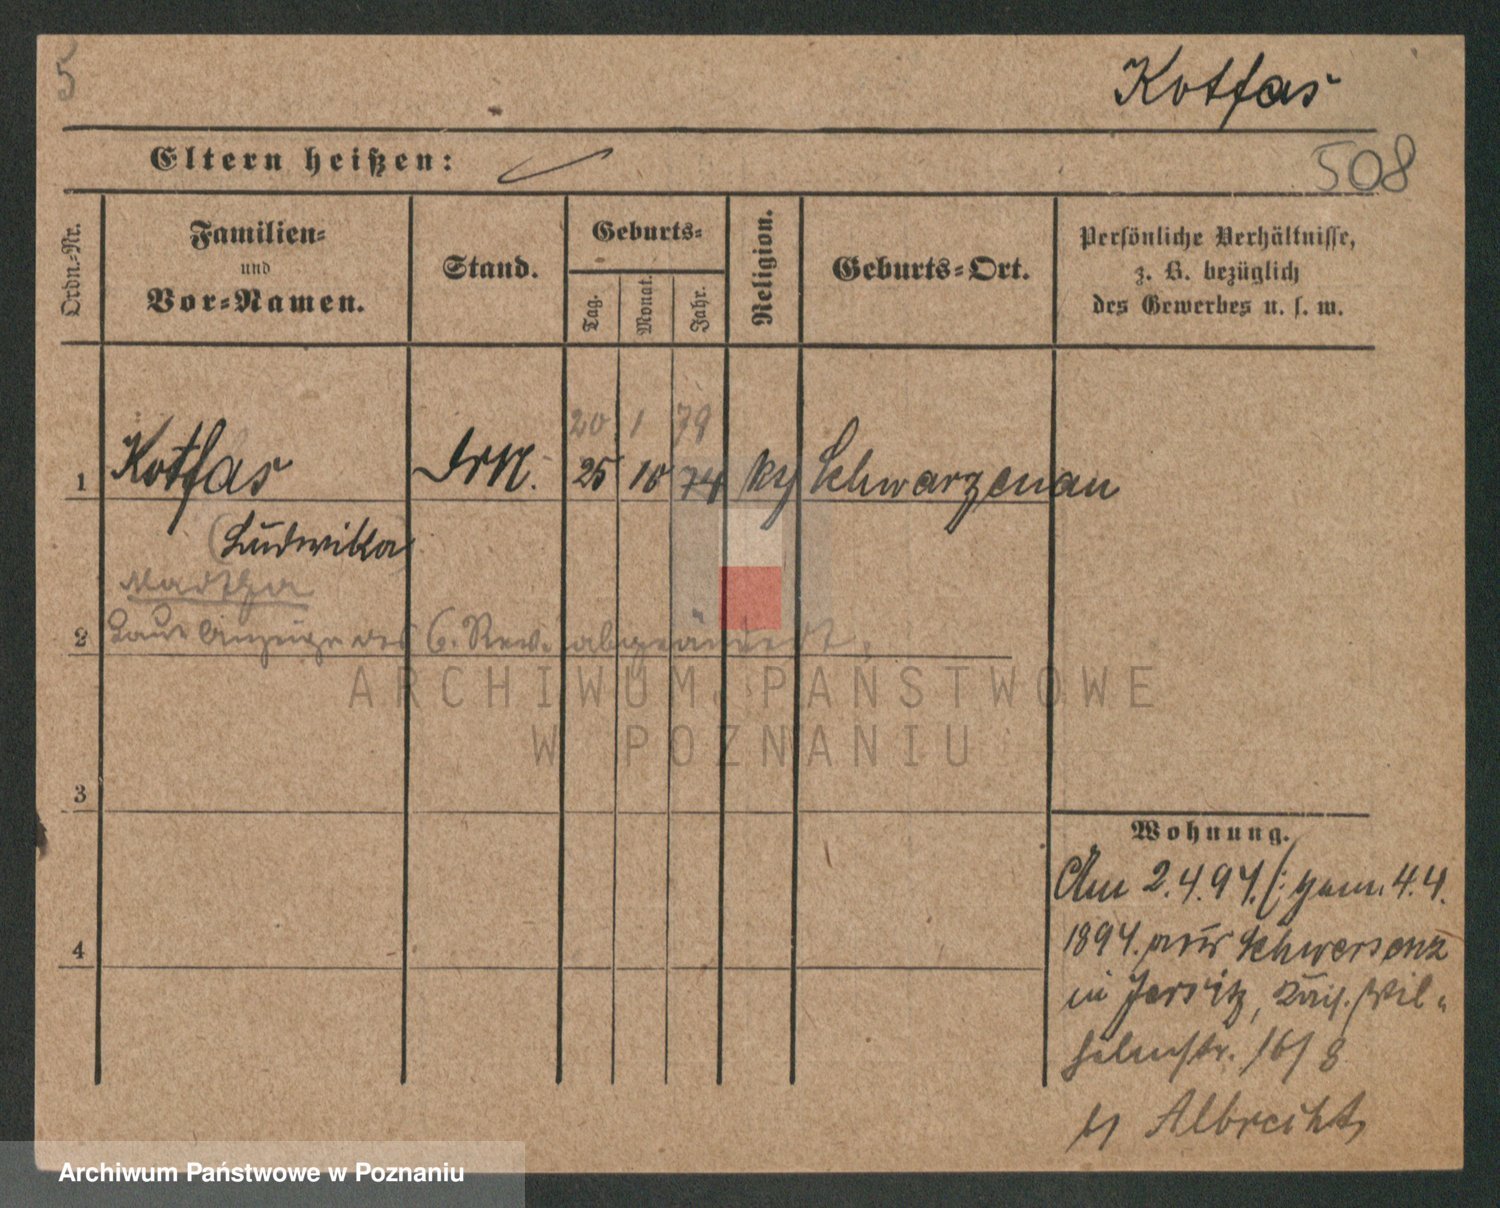 5
Kotfas
508
Eltern heißen:
Ordn.-Nr.
Familien-
und
Vor-Namen.
Stand.
Geburts-
Tag.
Monat.
Jahr.
Religion.
Geburts-Ort.
Persönliche Verhältnisse,
z. B. bezüglich
des Gewerbes u. s. w.
20 1 79
1 Kotfas 25 10 74 Schwarzenau
(Ludwika)
Martha
2 Laut Anzeige des 6. Rev. abgeändert.
ARCHIWUM PAŃSTWOWE
W POZNANIU
3
Wohnung.
Am 2.4.94. (: gem. 4.4.
1894. aus Schwersenz
4
in Jersitz, Kais. Wil-
helmstr. 8
Albrecht
Archiwum Państwowe w Poznaniu